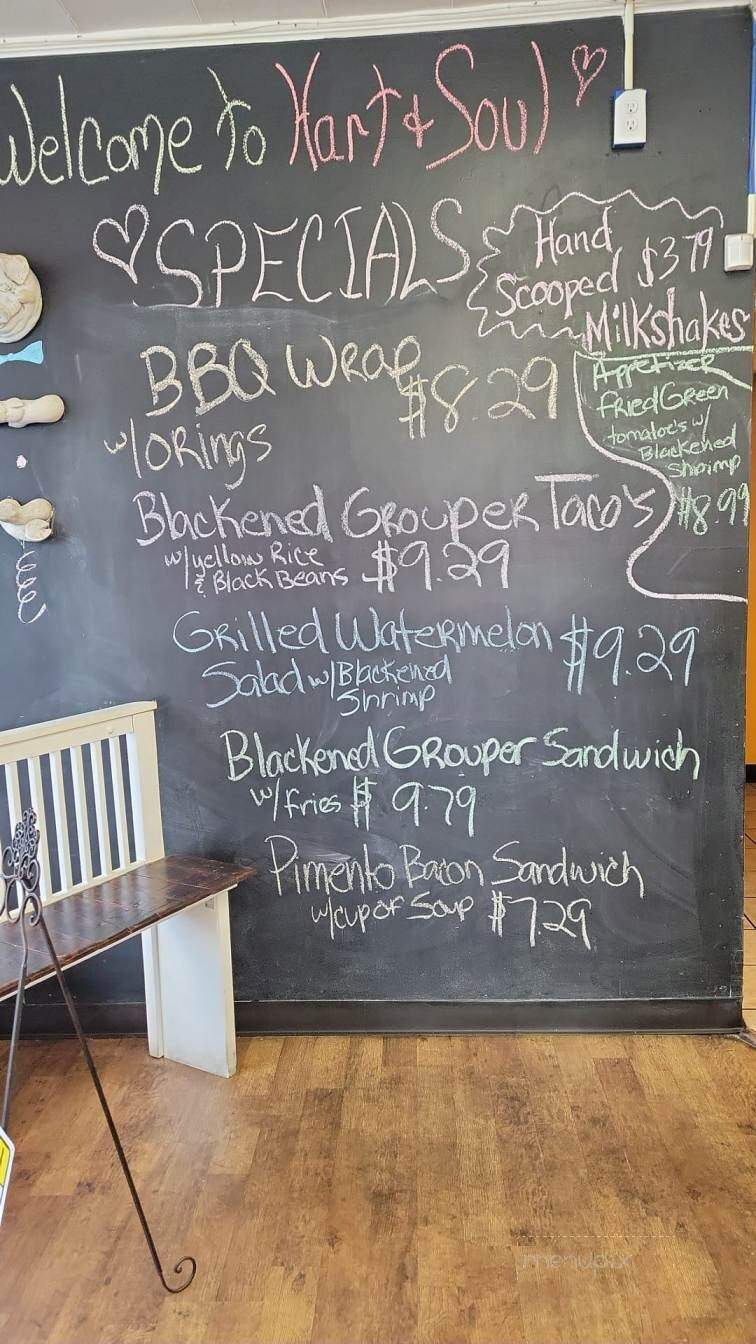 Welcome to Hart & Soul
SPECIALS
Hand
Scooped $3.79
Milkshakes
BBQ Wrap
$8.29
w/ORings
Appetizer
fried Green
tomatoe's w/
Blackened
Shrimp
$8.99
Blackened Grouper Taco's
w/yellow Rice
& Black Beans $9.29
Grilled Watermelon $9.29
Salad w/Blackened
Shrimp
Blackened Grouper Sandwich
w/fries $9.79
Pimento Bacon Sandwich
w/cup of Soup $7.29
menupix